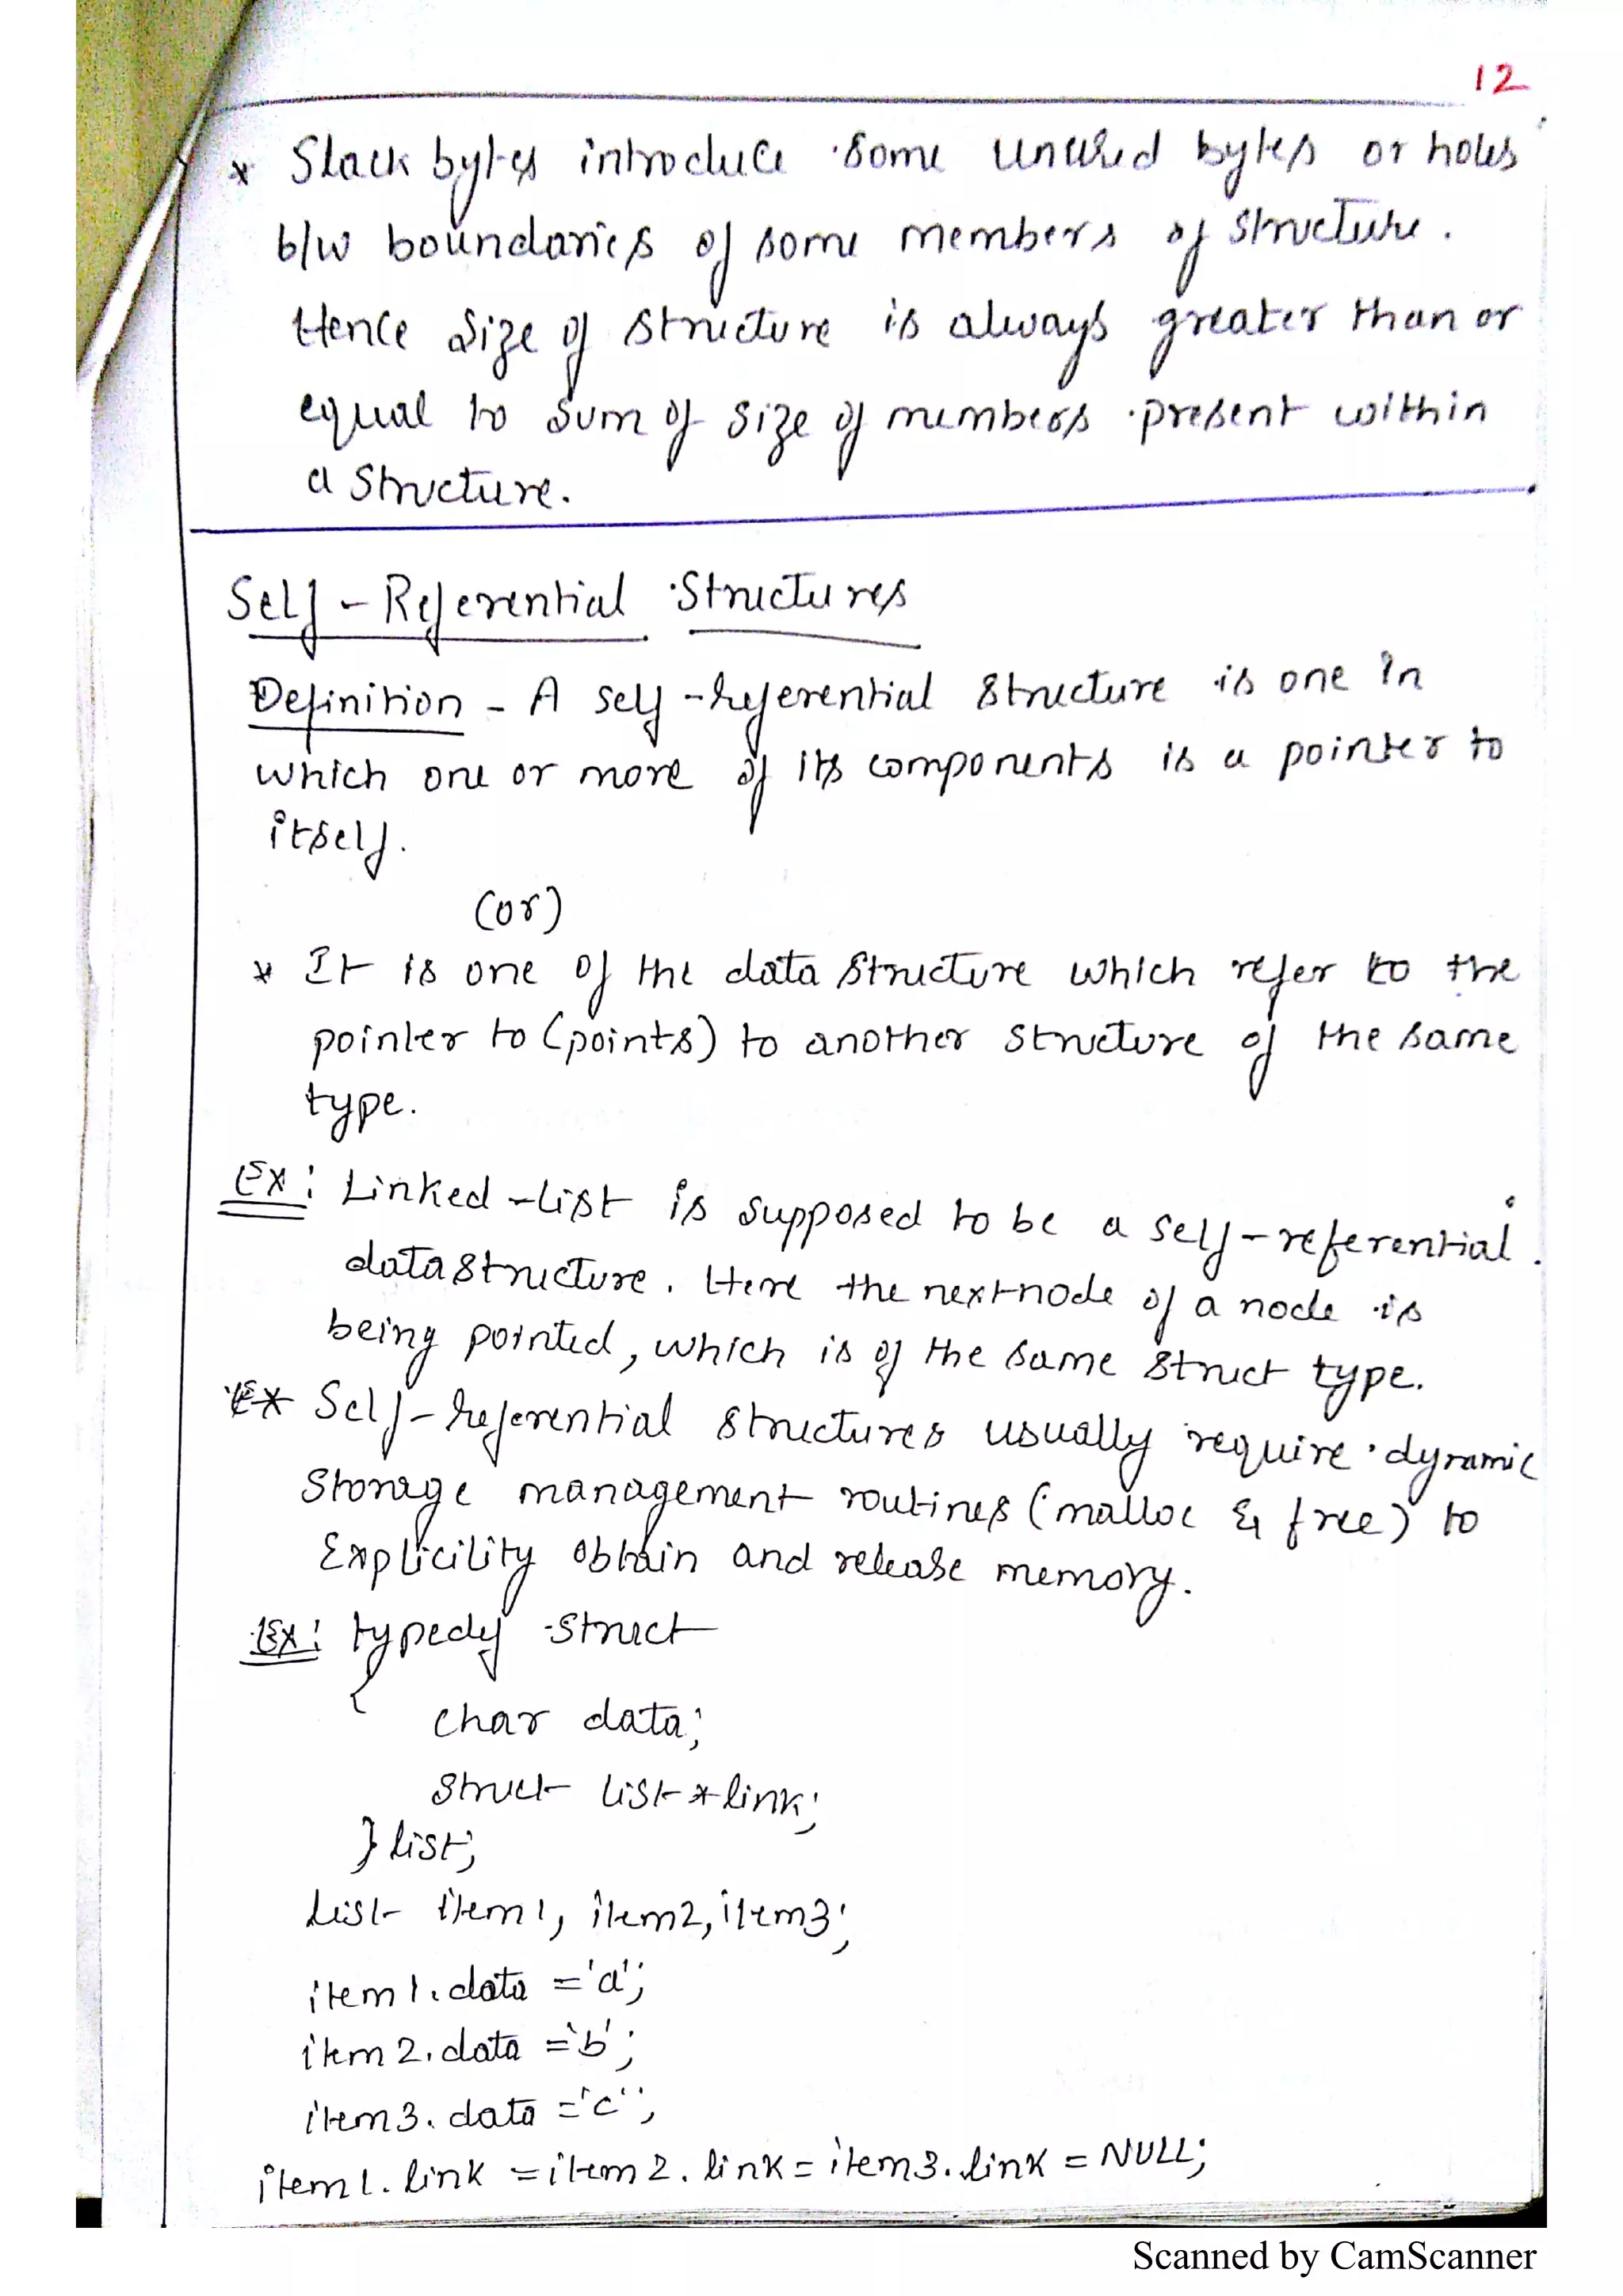 12
* Slack bytes introduce some unused bytes or holes
b/w boundaries of some members of structure.
Hence size of structure is always greater than or
equal to sum of size of members present within
a structure.
Self-Referential Structures
Definition - A self-referential structure is one in
which one or more of its components is a pointer to
itself.
(or)
* It is one of the data structure which refer to the
pointer to (points) to another structure of the same
type.
Ex: Linked-list is supposed to be a self-referential
datastructure. Here the nextnode of a node is
being pointed, which is of the same struct type.
* Self-referential structures usually require dynamic
storage management routines (malloc & free) to
Explicility obtain and release memory.
Ex: typedef struct
{
char data;
struct list *link;
} list;
List item1, item2, item3;
item1.data ='a';
item2.data ='b';
item3.data ='c';
item1.link = item2.link = item3.link = NULL;
Scanned by CamScanner